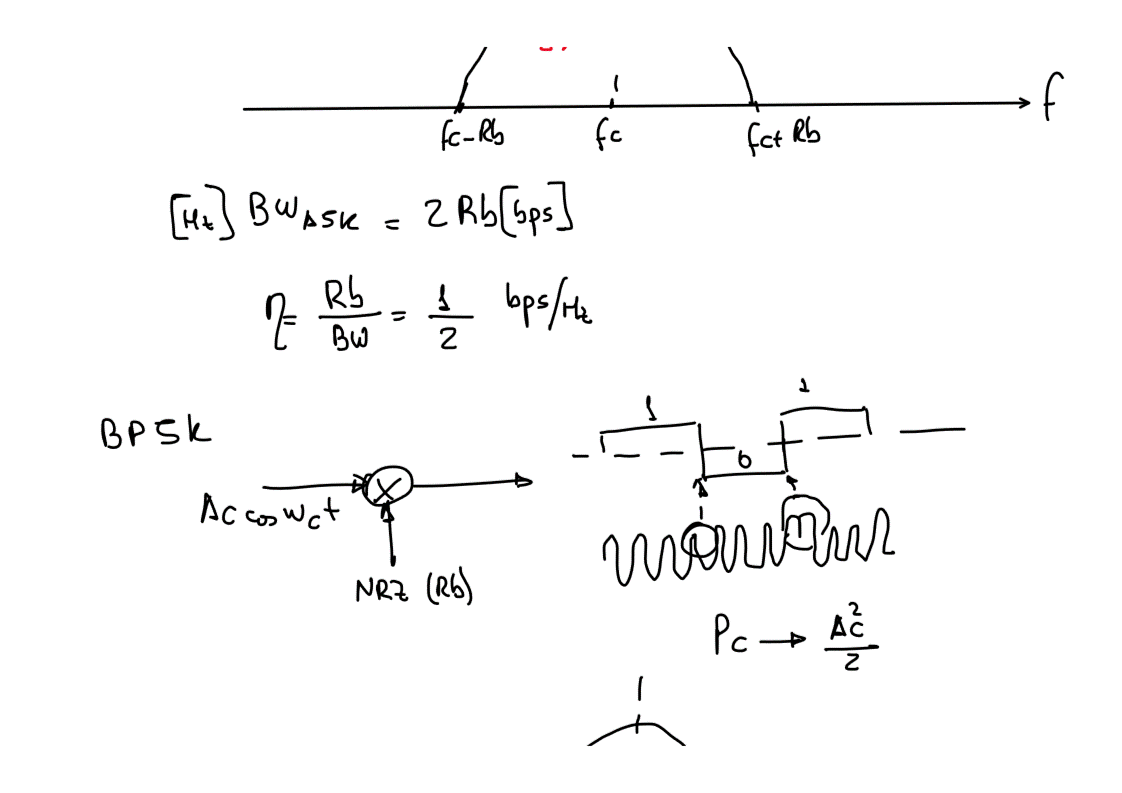 f
fc-Rb fc fc+Rb
[Hz] BW ASK = 2Rb[bps]
η = Rb/BW = 1/2 bps/Hz
1 1
BPSK
0
Ac cos wct X
NRZ (Rb)
Pc → Ac²/2